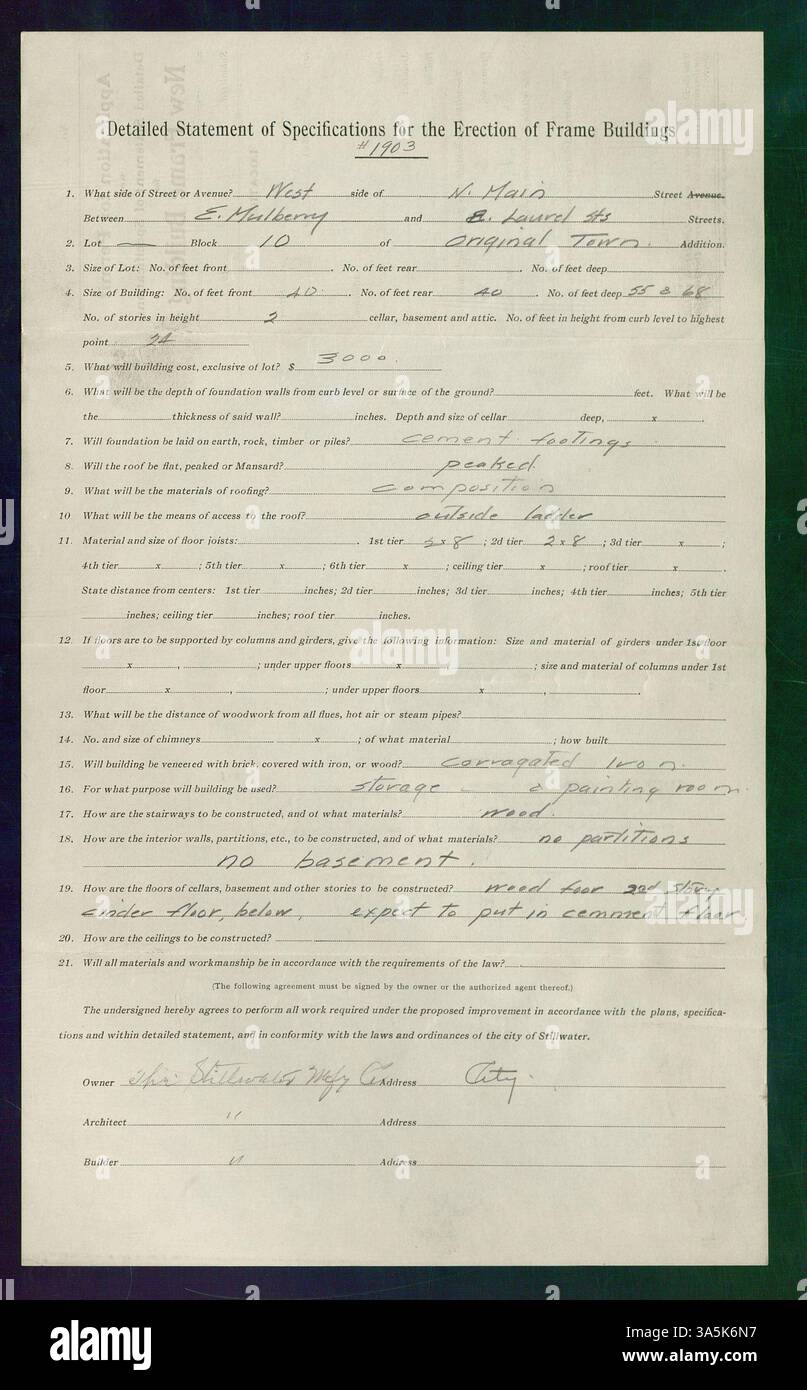 Detailed Statement of Specifications for the Erection of Frame Buildings
#1903
1. What side of Street or Avenue? West side of N. Main Street Avenue.
Between E. Mulberry and E. Laurel Sts Streets.
2. Lot — Block 10 of Original Town. Addition.
3. Size of Lot: No. of feet front . No. of feet rear . No. of feet deep
4. Size of Building: No. of feet front 40 . No. of feet rear 40 . No. of feet deep 55 & 68
No. of stories in height 2 cellar, basement and attic. No. of feet in height from curb level to highest
point 24
5. What will building cost, exclusive of lot? $ 3000.
6. What will be the depth of foundation walls from curb level or surface of the ground? feet. What will be
the thickness of said wall? inches. Depth and size of cellar deep, x .
7. Will foundation be laid on earth, rock, timber or piles? cement footings
8. Will the roof be flat, peaked or Mansard? peaked.
9. What will be the materials of roofing? composition
10 What will be the means of access to the roof? outside ladder
11. Material and size of floor joists: . 1st tier 2 x 8 ; 2d tier 2 x 8 ; 3d tier x ;
4th tier x ; 5th tier x ; 6th tier x ; ceiling tier x ; roof tier x .
State distance from centers: 1st tier inches; 2d tier inches; 3d tier inches; 4th tier inches; 5th tier
inches; ceiling tier inches; roof tier inches.
12. If floors are to be supported by columns and girders, give the following information: Size and material of girders under 1st floor
x , ; under upper floors x ; size and material of columns under 1st
floor x , ; under upper floors x , .
13. What will be the distance of woodwork from all flues, hot air or steam pipes?
14. No. and size of chimneys x ; of what material ; how built
15. Will building be veneered with brick, covered with iron, or wood? corragated Iron.
16. For what purpose will building be used? storage & painting room.
17. How are the stairways to be constructed, and of what materials? wood.
18. How are the interior walls, partitions, etc., to be constructed, and of what materials? no partitions
no basement.
19. How are the floors of cellars, basement and other stories to be constructed? wood foor 2nd story
cinder floor, below, expect to put in cemment floor.
20. How are the ceilings to be constructed?
21. Will all materials and workmanship be in accordance with the requirements of the law?
(The following agreement must be signed by the owner or the authorized agent thereof.)
The undersigned hereby agrees to perform all work required under the proposed improvement in accordance with the plans, specifica-
tions and within detailed statement, and in conformity with the laws and ordinances of the city of Stillwater.
Owner The Stillwater Mfg Co Address City
Architect " Address
Builder " Address
alamy
3A5K6N7
www.alamy.com